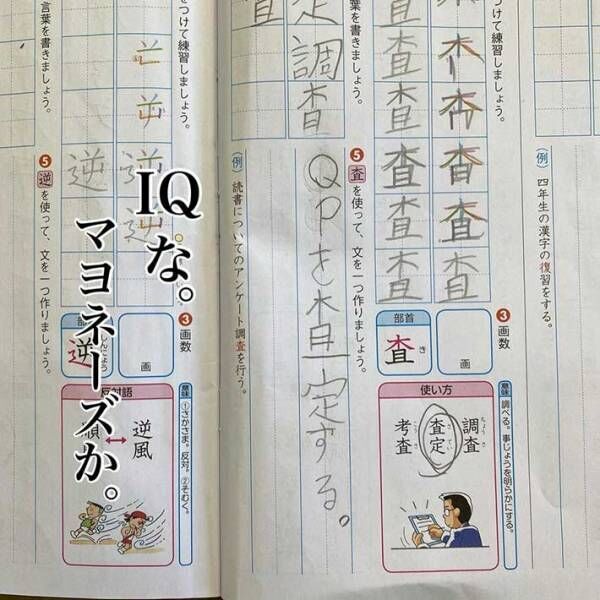 (例) 四年生の漢字の復習をする。
つけて練習しましょう。
査
査
査
査
査
査
査
査
査
❸画数
画
部首
査
き
使い方
調査
ちょうさ
査定
さてい
考査
こうさ
意味
調べる。事じょうを明らかにする。
言葉を書きましょう。
定
調査
査
❺査を使って、文を一つ作りましょう。
QPを査定する。
(例) 読書についてのアンケート調査を行う。
をつけて練習しましょう。
逆
逆
逆
❸画数
画
しんにょう
逆
反対語
逆風
順
意味
①さかさま。反対。②そむく。
言葉を書きましょう。
逆
❺逆を使って、文を一つ作りましょう。
IQな。
マヨネーズか。